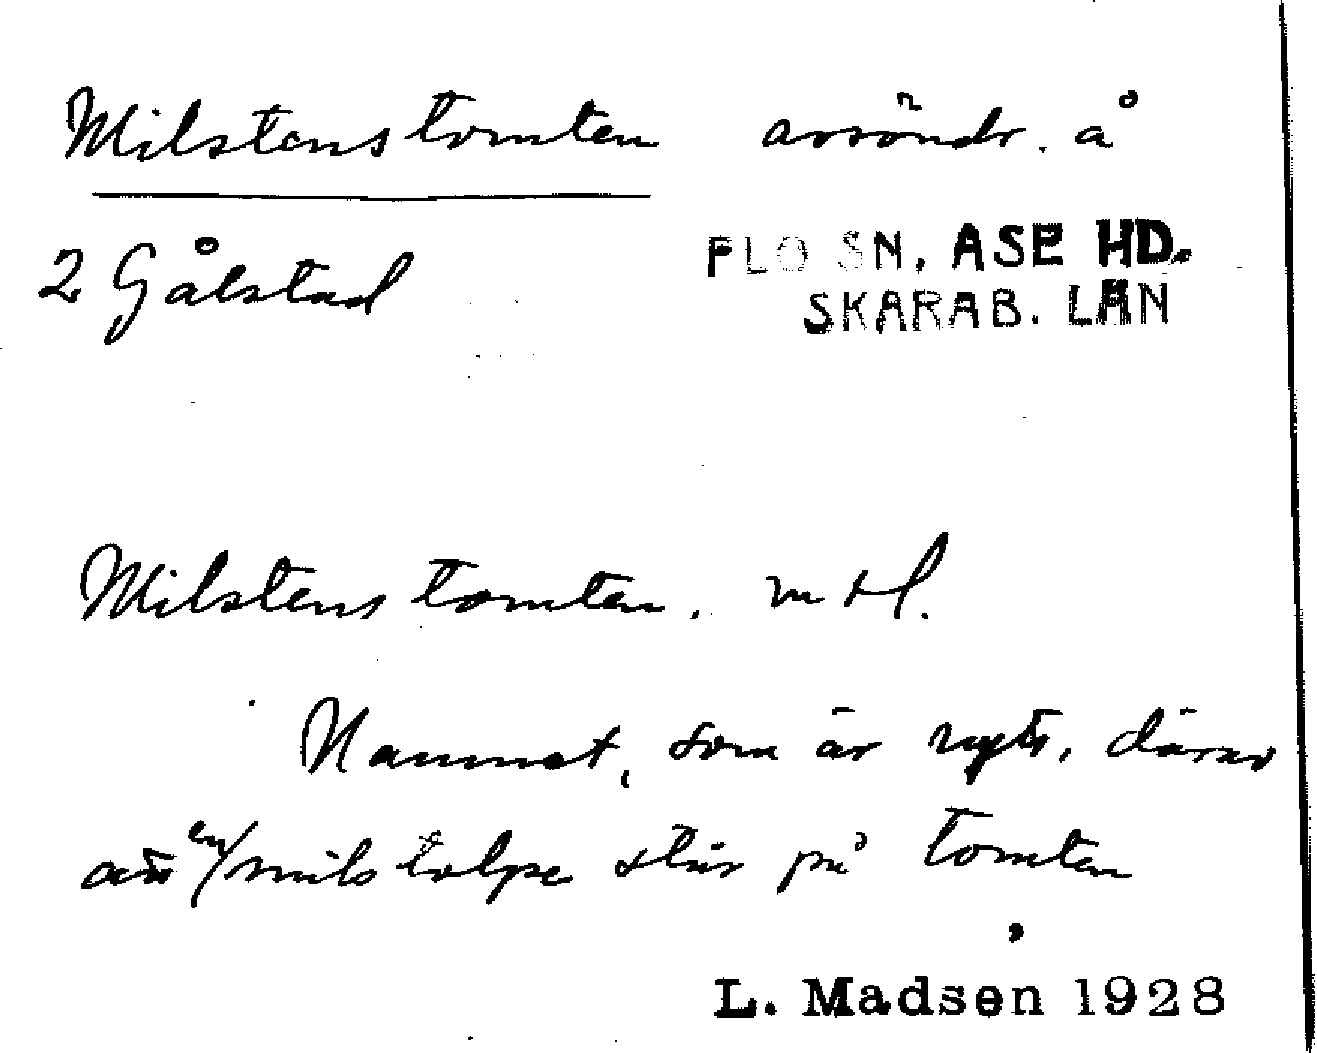 Milstenstomten avsöndr. å
2 Gålstad
FLO SN. ASE HD.
SKARAB. LÄN
Milstenstomten. mtl.
Namnet, som är nytt, därav
att en milstolpe står på tomten
L. Madsen 1928